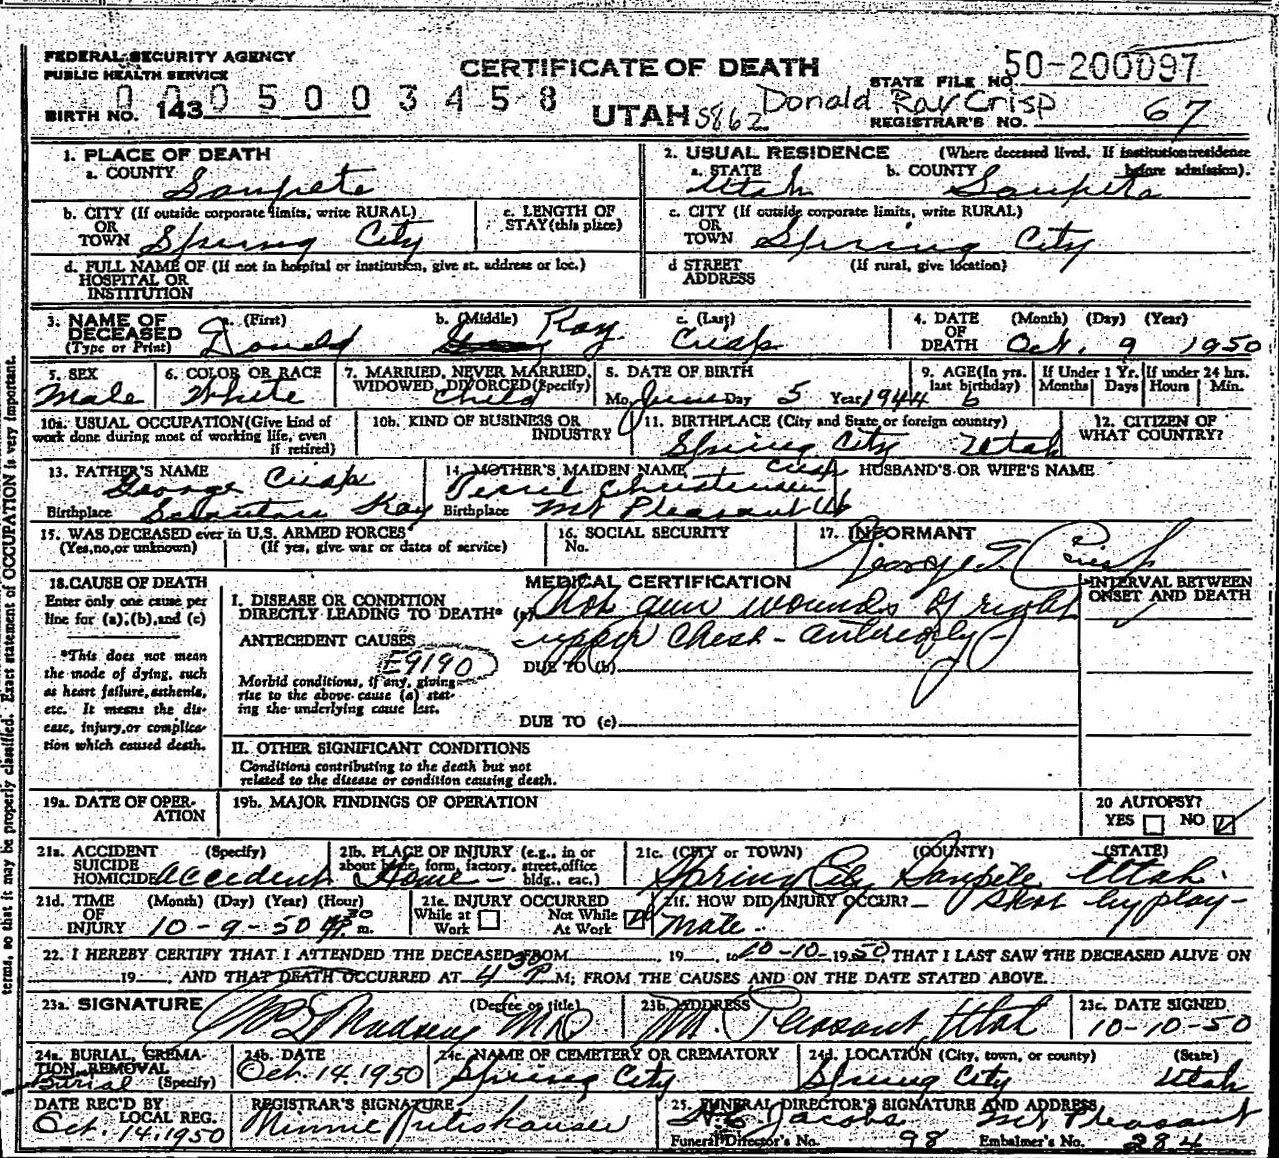 FEDERAL SECURITY AGENCY
PUBLIC HEALTH SERVICE
CERTIFICATE OF DEATH
STATE FILE NO. 50-200097
0005003458
BIRTH NO. 143
UTAH 5862 Donald Ray Crisp
REGISTRAR'S NO. 67
1. PLACE OF DEATH
a. COUNTY Sanpete
2. USUAL RESIDENCE (Where deceased lived. If institution: residence before admission).
a. STATE Utah b. COUNTY Sanpete
b. CITY (If outside corporate limits, write RURAL) OR TOWN Spring City
c. LENGTH OF STAY (this place)
c. CITY (If outside corporate limits, write RURAL) OR TOWN Spring City
d. FULL NAME OF (If not in hospital or institution, give st. address or loc.) HOSPITAL OR INSTITUTION
d STREET ADDRESS (If rural, give location)
3. NAME OF DECEASED (Type or Print) a. (First) Donald b. (Middle) Ray c. (Last) Crisp
4. DATE OF DEATH (Month) (Day) (Year) Oct. 9 1950
5. SEX Male
6. COLOR OR RACE White
7. MARRIED, NEVER MARRIED, WIDOWED, DIVORCED (Specify) Child
8. DATE OF BIRTH Mo. June Day 5 Year 1944
9. AGE (In yrs. last birthday) 6
If Under 1 Yr. Months Days
If under 24 hrs. Hours Min.
10a. USUAL OCCUPATION (Give kind of work done during most of working life, even if retired)
10b. KIND OF BUSINESS OR INDUSTRY
11. BIRTHPLACE (City and State or foreign country) Spring City Utah
12. CITIZEN OF WHAT COUNTRY?
13. FATHER'S NAME George Crisp
Birthplace
14. MOTHER'S MAIDEN NAME Christensen Crisp
Birthplace Mt Pleasant Ut
HUSBAND'S OR WIFE'S NAME
15. WAS DECEASED ever in U.S. ARMED FORCES? (Yes, no, or unknown) (If yes, give war or dates of service)
16. SOCIAL SECURITY No.
17. INFORMANT George S. Crisp
18. CAUSE OF DEATH
Enter only one cause per line for (a), (b), and (c)
*This does not mean the mode of dying, such as heart failure, asthenia, etc. It means the disease, injury, or complication which caused death.
MEDICAL CERTIFICATION
INTERVAL BETWEEN ONSET AND DEATH
I. DISEASE OR CONDITION DIRECTLY LEADING TO DEATH* (a) Shot gun wounds of right
upper chest - anteriorly -
ANTECEDENT CAUSES
E9190
DUE TO (b)
Morbid conditions, if any, giving rise to the above cause (a) stating the underlying cause last.
DUE TO (c)
II. OTHER SIGNIFICANT CONDITIONS
Conditions contributing to the death but not related to the disease or condition causing death.
19a. DATE OF OPERATION
19b. MAJOR FINDINGS OF OPERATION
20 AUTOPSY? YES NO
21a. ACCIDENT SUICIDE HOMICIDE (Specify) Accident
21b. PLACE OF INJURY (e.g., in or about home, farm, factory, street, office bldg., etc.) Home -
21c. (CITY or TOWN) (COUNTY) (STATE) Spring City Sanpete Utah.
21d. TIME OF INJURY (Month) (Day) (Year) (Hour) 10-9-50 m.
21e. INJURY OCCURRED While at Work Not While At Work
21f. HOW DID INJURY OCCUR? - Shot by play-
mate.
22. I HEREBY CERTIFY THAT I ATTENDED THE DECEASED FROM 19 , to 10-10-1950 THAT I LAST SAW THE DECEASED ALIVE ON
19 , AND THAT DEATH OCCURRED AT 4 30 P M; FROM THE CAUSES AND ON THE DATE STATED ABOVE.
23a. SIGNATURE (Degree or title) Madsen MD
23b. ADDRESS Mt. Pleasant Utah
23c. DATE SIGNED 10-10-50
24a. BURIAL, CREMATION, REMOVAL (Specify) Burial
24b. DATE Oct. 14. 1950
24c. NAME OF CEMETERY OR CREMATORY Spring City
24d. LOCATION (City, town, or county) (State) Spring City Utah
DATE REC'D BY LOCAL REG. Oct. 14. 1950
REGISTRAR'S SIGNATURE Minnie
25. FUNERAL DIRECTOR'S SIGNATURE AND ADDRESS Jacobs Mt Pleasant
Funeral Director's No. 98 Embalmer's No. 284
terms, so that it may be properly classified. Exact statement of OCCUPATION is very important.